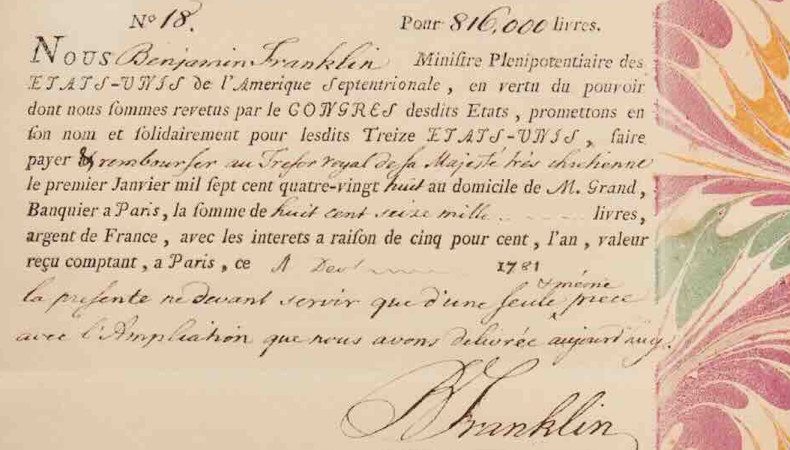 No 18. Pour 816,000 livres.
Nous Benjamin Franklin Miniſtre Plenipotentiaire des
ETATS-UNIS de l'Amerique Septentrionale, en vertu du pouvoir
dont nous ſommes revetus par le CONGRES desdits Etats, promettons en
ſon nom et ſolidairement pour lesdits Treize ETATS-UNIS, faire
payer & rembourſer au Treſor royal de ſa Majesté très chrétienne
le premier Janvier mil ſept cent quatre-vingt huit au domicile de M. Grand,
Banquier a Paris, la ſomme de huit cent seize mille livres,
argent de France, avec les interets a raiſon de cinq pour cent, l'an, valeur
reçu comptant, a Paris, ce 1781
la preſente ne devant servir que d'une ſeule & même piece
avec l'Ampliation que nous avons delivrée aujourd'huy.
B Franklin